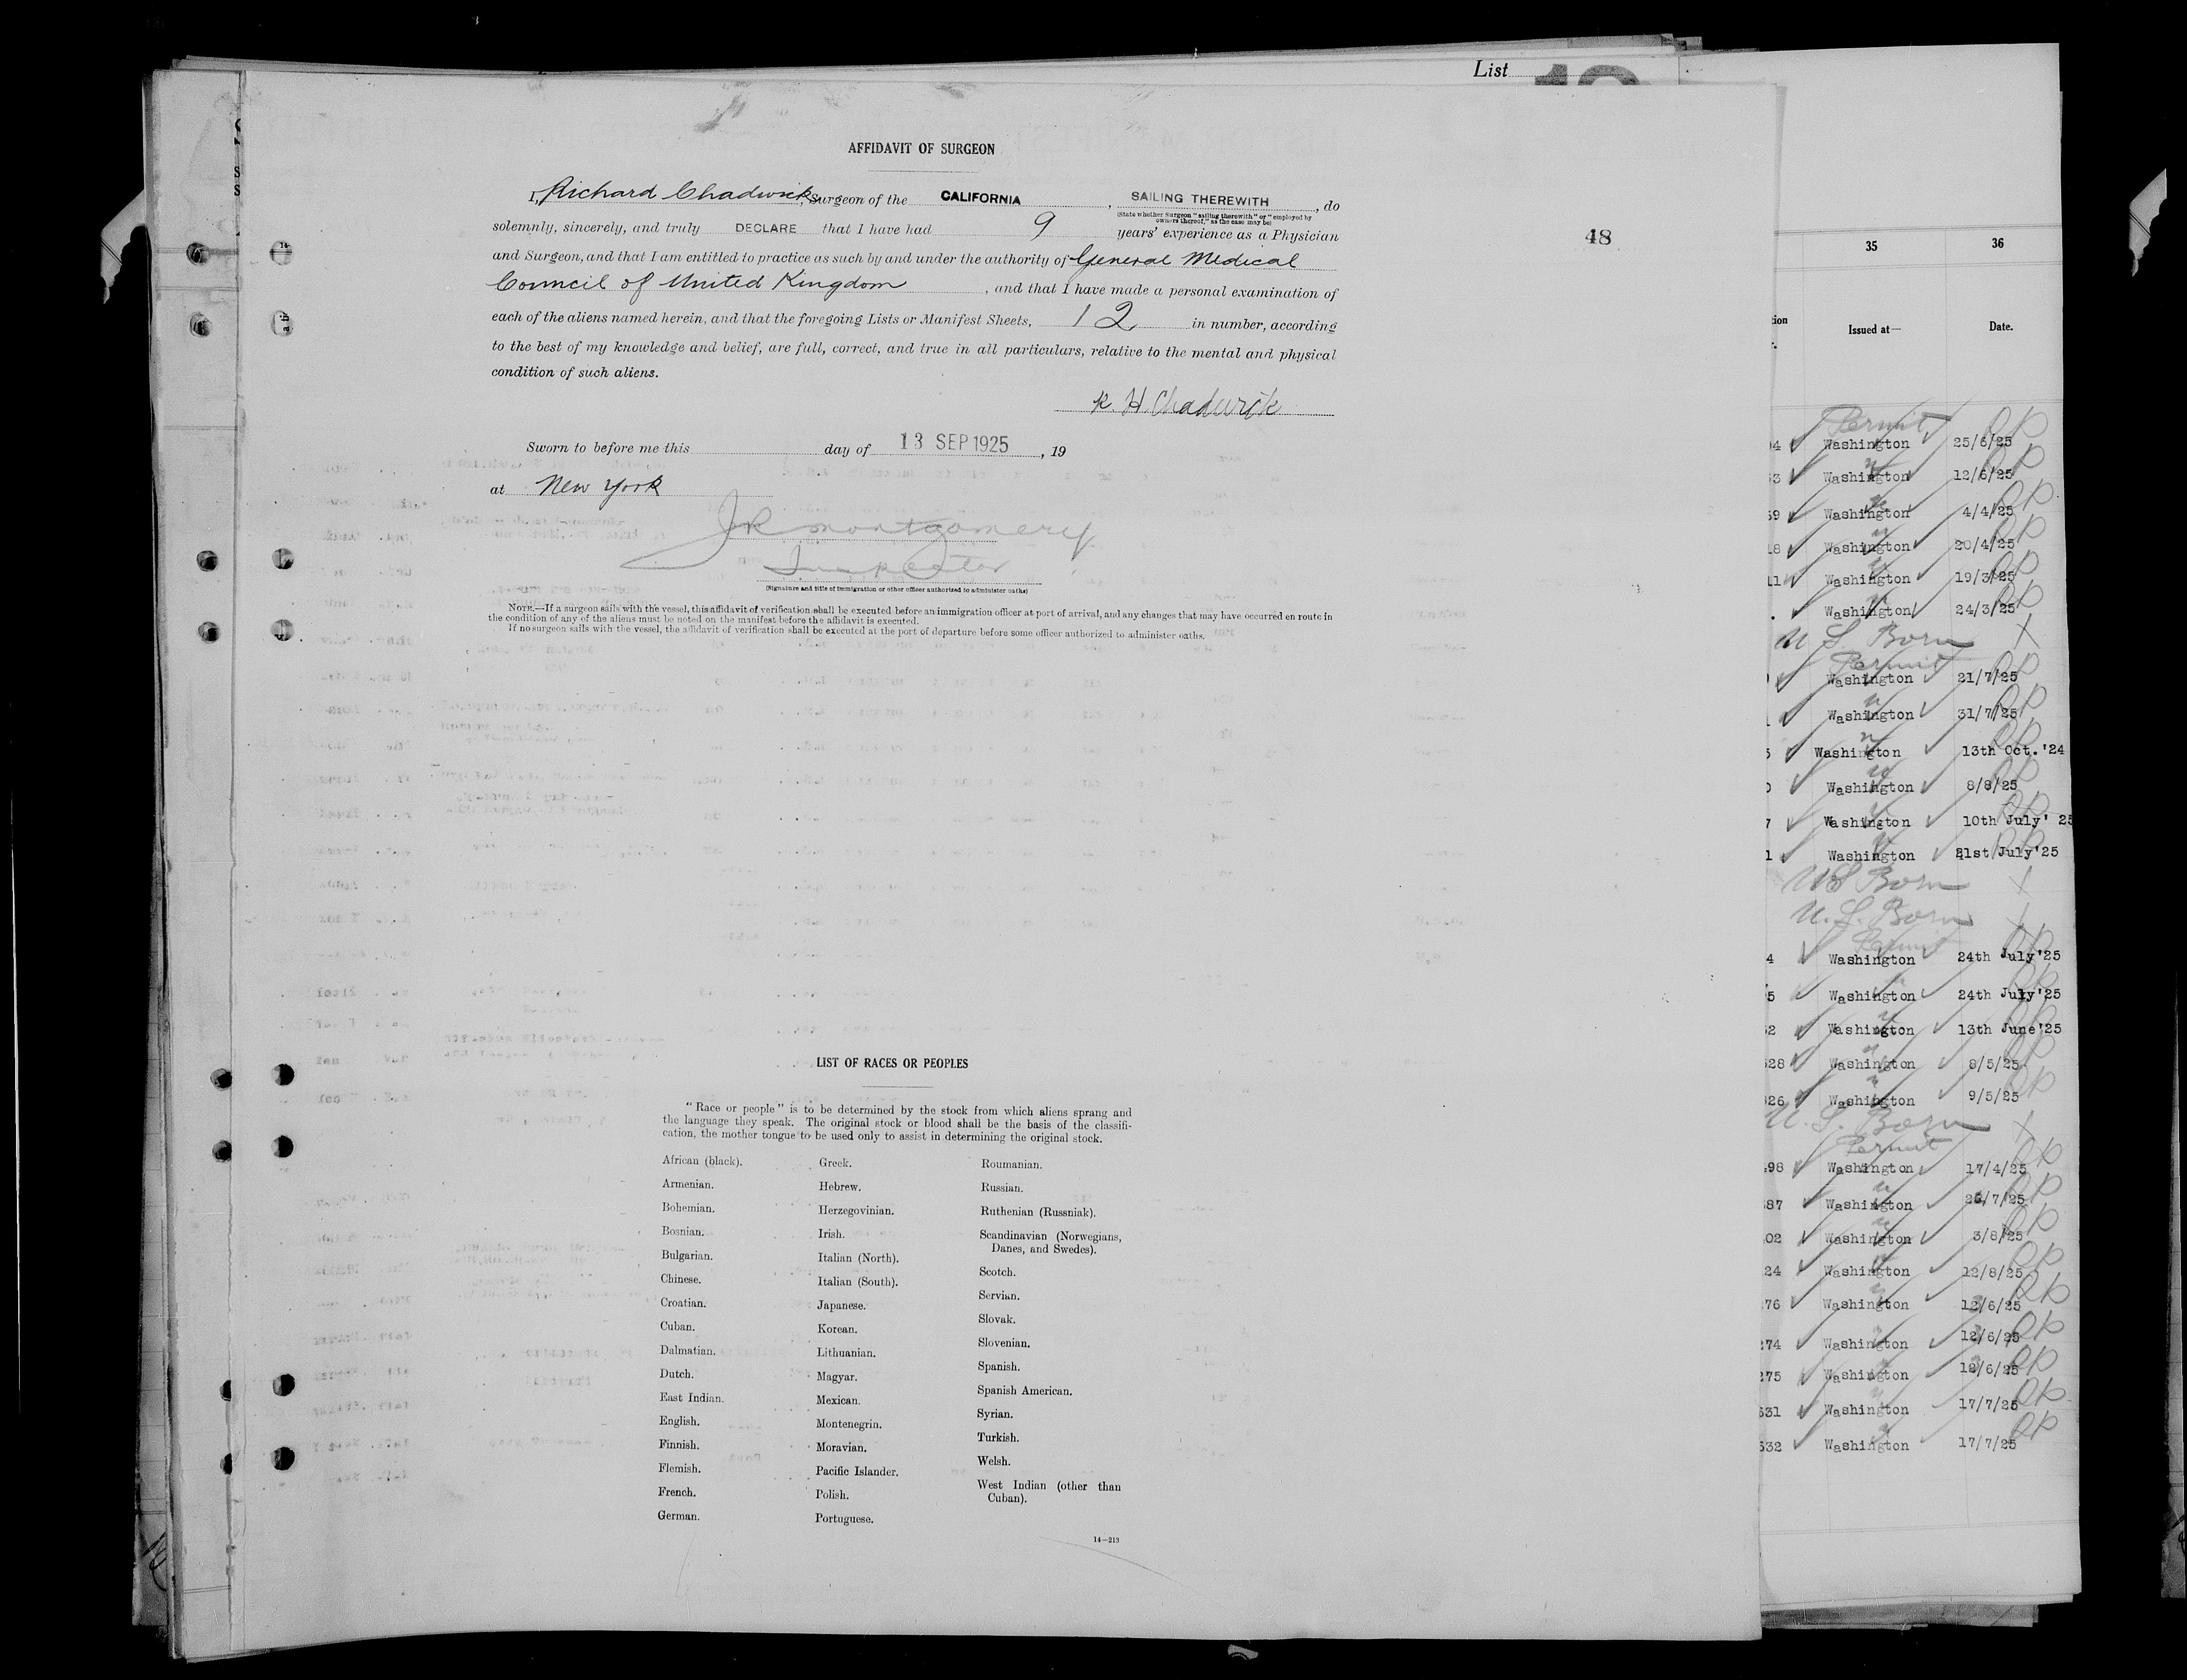 List
AFFIDAVIT OF SURGEON
I, Richard Chadwick, Surgeon of the CALIFORNIA , SAILING THEREWITH , do
(State whether Surgeon "sailing therewith" or "employed by
owners thereof," as the case may be)
solemnly, sincerely, and truly DECLARE that I have had 9 years' experience as a Physician
and Surgeon, and that I am entitled to practice as such by and under the authority of General Medical
Council of United Kingdom , and that I have made a personal examination of
each of the aliens named herein, and that the foregoing Lists or Manifest Sheets, 12 in number, according
to the best of my knowledge and belief, are full, correct, and true in all particulars, relative to the mental and physical
condition of such aliens.
R. H. Chadwick
Sworn to before me this day of 13 SEP 1925 , 19
at New York
JR Montgomery
Inspector
(Signature and title of immigration or other officer authorized to administer oaths)
NOTE.—If a surgeon sails with the vessel, this affidavit of verification shall be executed before an immigration officer at port of arrival, and any changes that may have occurred en route in
the condition of any of the aliens must be noted on the manifest before the affidavit is executed.
If no surgeon sails with the vessel, the affidavit of verification shall be executed at the port of departure before some officer authorized to administer oaths.
48
LIST OF RACES OR PEOPLES
"Race or people" is to be determined by the stock from which aliens sprang and
the language they speak. The original stock or blood shall be the basis of the classifi-
cation, the mother tongue to be used only to assist in determining the original stock.
African (black).
Armenian.
Bohemian.
Bosnian.
Bulgarian.
Chinese.
Croatian.
Cuban.
Dalmatian.
Dutch.
East Indian.
English.
Finnish.
Flemish.
French.
German.
Greek.
Hebrew.
Herzegovinian.
Irish.
Italian (North).
Italian (South).
Japanese.
Korean.
Lithuanian.
Magyar.
Mexican.
Montenegrin.
Moravian.
Pacific Islander.
Polish.
Portuguese.
Roumanian.
Russian.
Ruthenian (Russniak).
Scandinavian (Norwegians,
Danes, and Swedes).
Scotch.
Servian.
Slovak.
Slovenian.
Spanish.
Spanish American.
Syrian.
Turkish.
Welsh.
West Indian (other than
Cuban).
14—213
35 36
Issued at— Date.
Permit
Washington 25/6/25
Washington 12/6/25
Washington 4/4/25
Washington 20/4/25
Washington 19/3/25
Washington 24/3/25
U S. Born X
Permit
Washington 21/7/25
Washington 31/7/25
Washington 13th Oct.'24
Washington 8/8/25
Washington 10th July' 25
Washington 21st July'25
US Born X
U. S. Born X
Permit
4 Washington 24th July'25
5 Washington 24th July'25
2 Washington 13th June'25
28 Washington 8/5/25
26 Washington 9/5/25
U. S. Born X
Permit
98 Washington 17/4/25
87 Washington 7/25
02 Washington 3/8/25
24 Washington 12/8/25
76 Washington 12/6/25
74 Washington 12/6/25
75 Washington 12/6/25
31 Washington 17/7/25
32 Washington 17/7/25